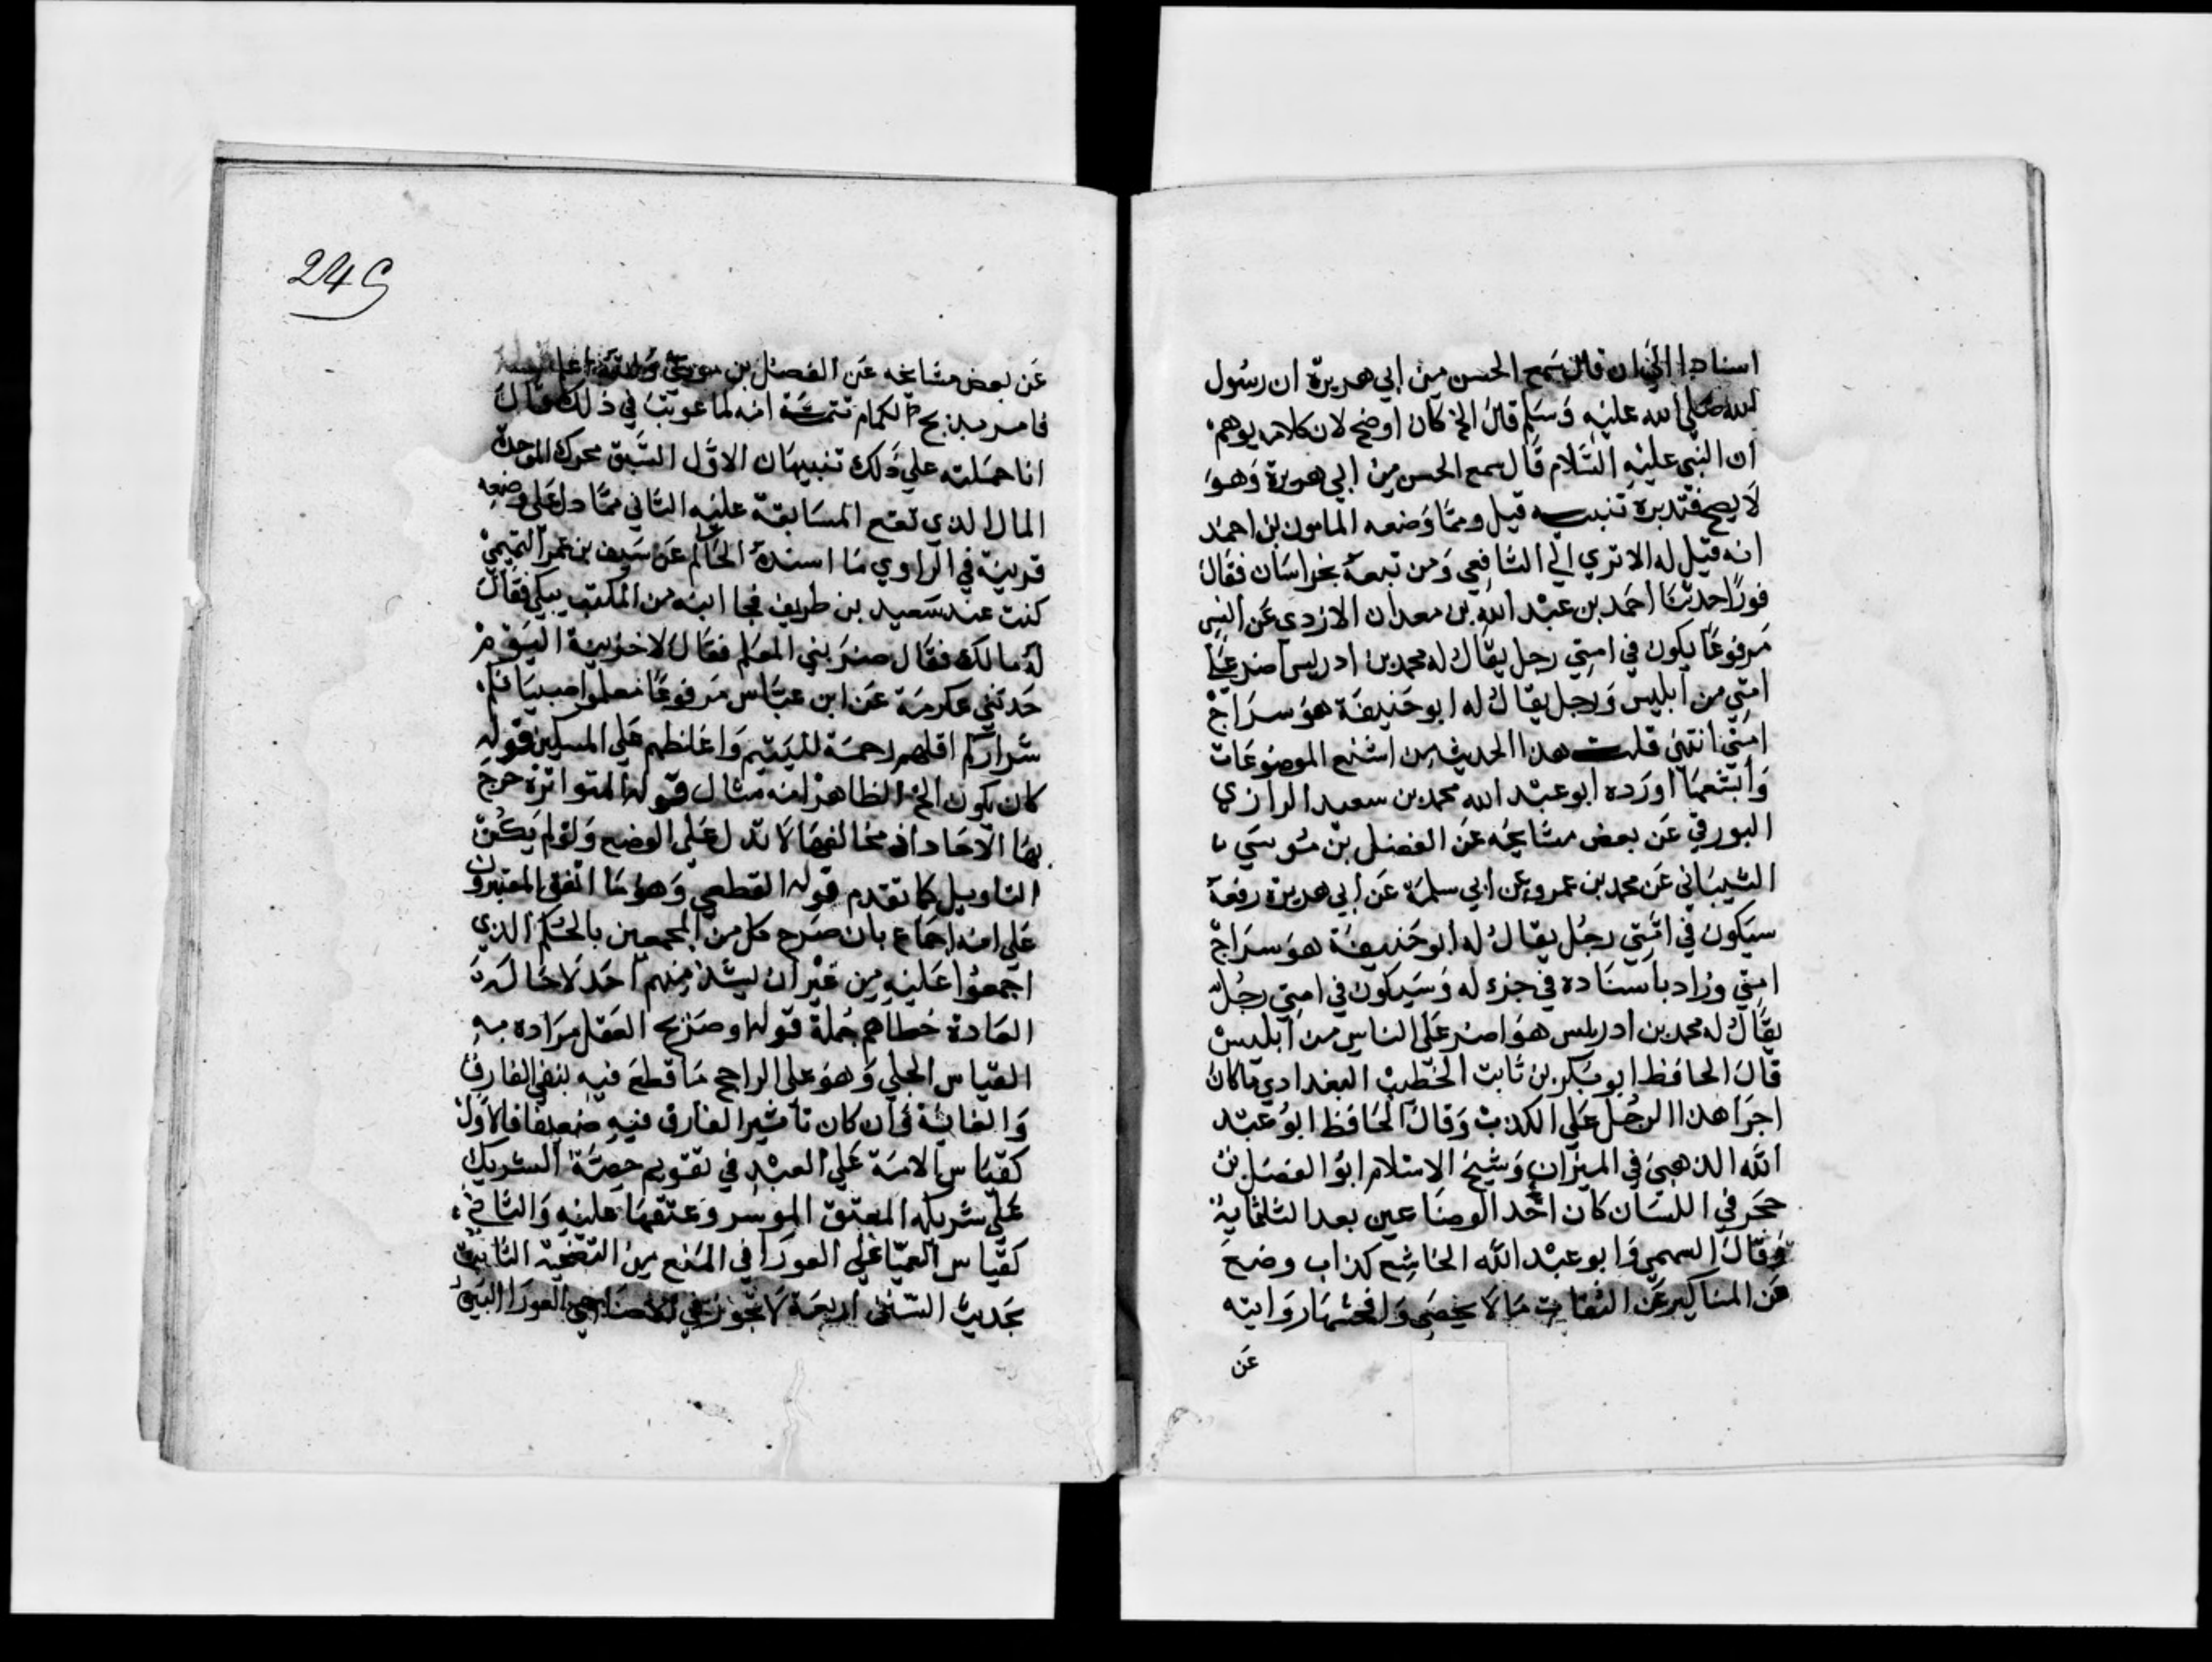 اسنادا الي ان قال سمع الحسن من ابي هريرة ان رسول
الله صلي الله عليه وسلم قال الخ كان اوضح لان كلامه يوهم
ان النبي عليه السلام قال سمع الحسن من ابي هريرة وهو
لا يصح فتدبره تنبيه قيل ومما وضعه المامون بن احمد
انه قيل له الا تري الي الشافعي ومن تبعه بخراسان فقال
فورا حدثنا احمد بن عبد الله بن معدان الازدي عن انس
مرفوعا يكون في امتي رجل يقال له محمد بن ادريس اضر علي
امتي من ابليس ورجل يقال له ابو حنيفة هو سراج
امتي انتهي قلت هذا الحديث من اشنع الموضوعات
وابشعها اورده ابو عبد الله محمد بن سعيد الرازي
البورقي عن بعض مشايخه عن الفضل بن موسي
الشيباني عن محمد بن عمرو عن ابي سلمة عن ابي هريرة رفعه
سيكون في امتي رجل يقال له ابو حنيفة هو سراج
امتي وزاد باسناده في جزء له وسيكون في امتي رجل
يقال له محمد بن ادريس هو اضر علي الناس من ابليس
قال الحافظ ابو بكر بن ثابت الخطيب البغدادي ما كان
اجرا هذا الرجل علي الكذب وقال الحافظ ابو عبد
الله الذهبي في الميزان وشيخ الاسلام ابو الفضل بن
حجر في اللسان كان احد الوضاعين بعد الثلثماية
وقال السهمي وابو عبد الله الحاشع كذاب وضع
من المناكير عن الثقات ما لا يحصي وافحشها روايته
عن
249
عن بعض مشايخه عن الفضل بن موسي
فامر بذبح الحمام تتمة انه لما عوتب في ذلك قال
انا حملته علي ذلك تنبيهان الاول السبق محرك الموحدة
المال الذي تقع المسابقة عليه الثاني مما دل علي وضعه
قرينة في الراوي ما اسنده الحاكم عن سيف بن عمر التميمي
كنت عند سعيد بن طريف فجا ابنه من المكتب يبكي فقال
له مالك فقال ضربني المعلم فقال لاخزينه اليوم
حدثني عكرمة عن ابن عباس مرفوعا معلموا صبيانكم
شراركم اقلهم رحمة لليتيم واغلظهم علي المسكين قوله
كان يكون الخ الظاهر انه مثال قوله المتواترة خرج
بها الاحاد اذ مخالفها لا تدل علي الوضع ولو لم يمكن
التاويل كما تقدم قوله القطعي وهو ما اتفق المعتبرون
علي انه اجماع بان صرح كل من المجمعين بالحكم الذي
اجمعوا عليه من غير ان يشذ منهم احد لاحالة
العادة خطاهم جملة قوله او صريح العقل مراده به
القياس الجلي وهو علي الراجح ما قطع فيه بنفي الفارق
والغاية في ان كان تاثير الفارق فيه ضعيفا فالاول
كقياس الامة علي العبد في تقويم حصة الشريك
علي شريكه المعتق الموسر وعتقها عليه والثاني
كقياس العميا علي العورا في المنع من التضحية الثابت
بحديث السنن اربعة لا تجوز في الاضاحي العورا البين